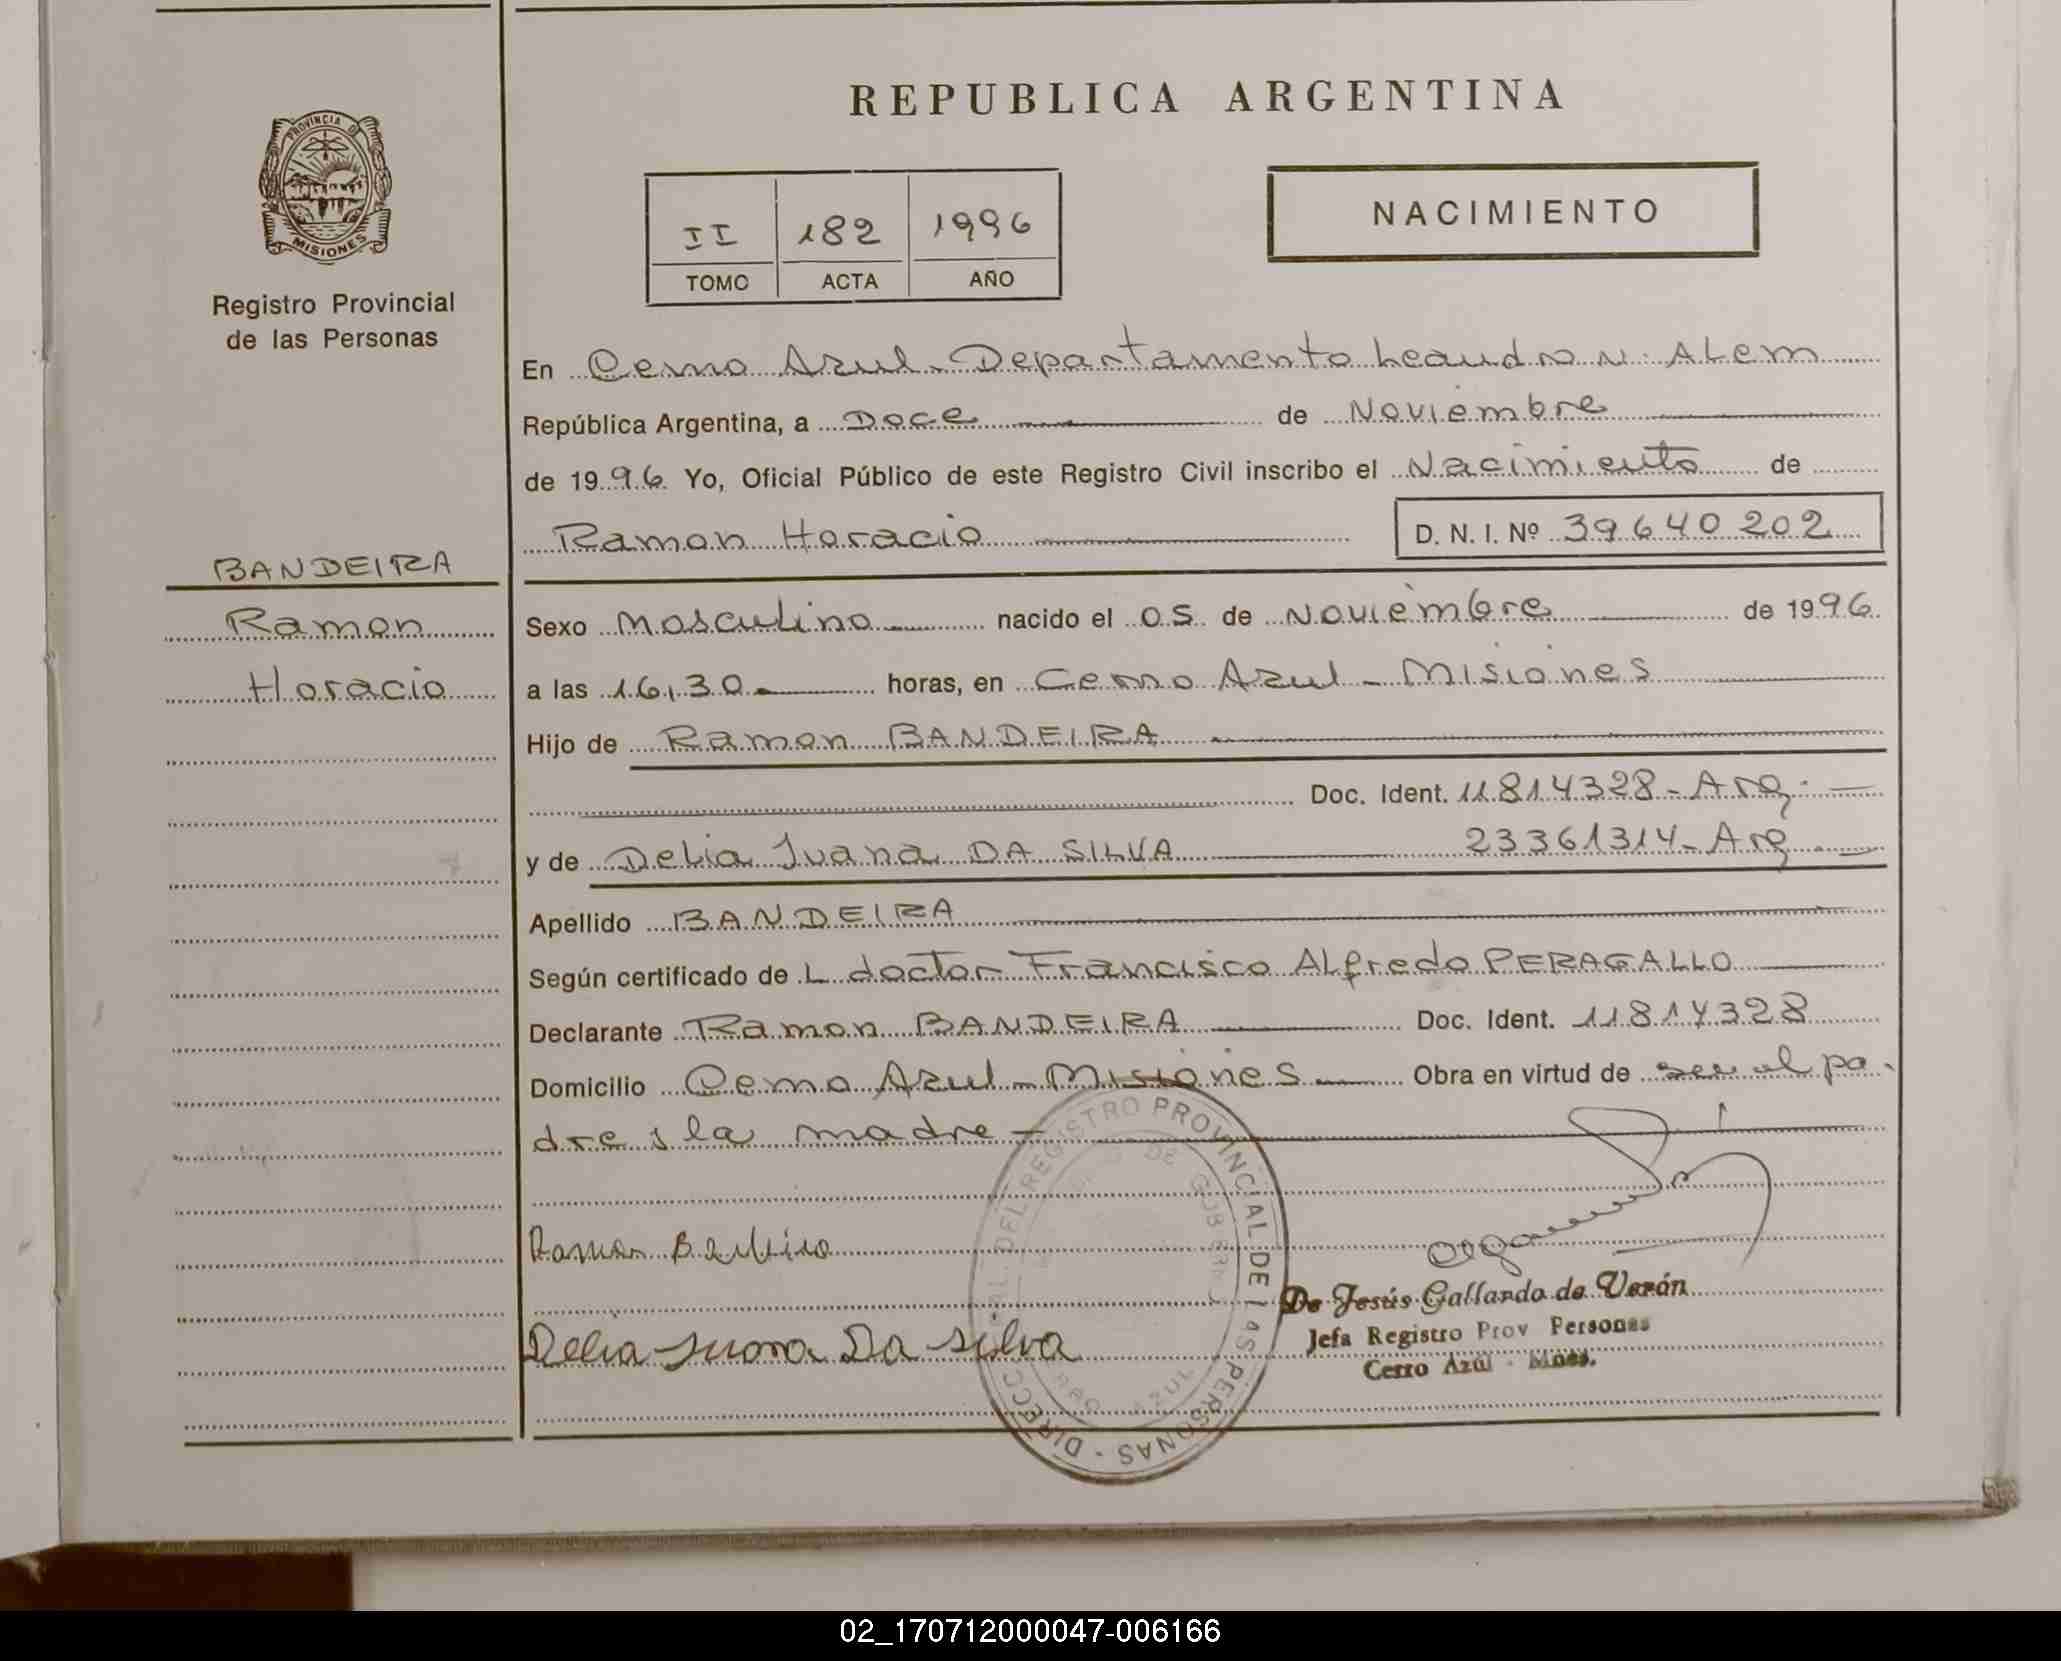 REPUBLICA ARGENTINA
PROVINCIA D
MISIONES
Registro Provincial
de las Personas
II 182 1996
TOMO ACTA AÑO
NACIMIENTO
En Cerro Azul - Departamento Leandro N. ALem
República Argentina, a Doce de Noviembre
de 1996 Yo, Oficial Público de este Registro Civil inscribo el Nacimiento de
Ramon Horacio D. N. I. Nº 39640202
BANDEIRA
Ramon
Horacio
Sexo Masculino nacido el 05 de Noviembre de 1996
a las 16,30 horas, en Cerro Azul - Misiones
Hijo de Ramon BANDEIRA
Doc. Ident. 11814328 - Arg.
y de Delia Juana DA SILVA 23361314 - Arg.
Apellido BANDEIRA
Según certificado de L doctor Francisco ALfredo PERAGALLO
Declarante Ramon BANDEIRA Doc. Ident. 11814328
Domicilio Cerro Azul - Misiones Obra en virtud de ser el pa-
dre y la madre
DEL REGISTRO PROVINCIAL DE LAS PERSONAS - DIRECC
Ramon
Delia Juana Da Silva
De Jesús Gallardo de Verón
Jefa Registro Prov Personas
Cerro Azul - Mnes.
02_170712000047-006166